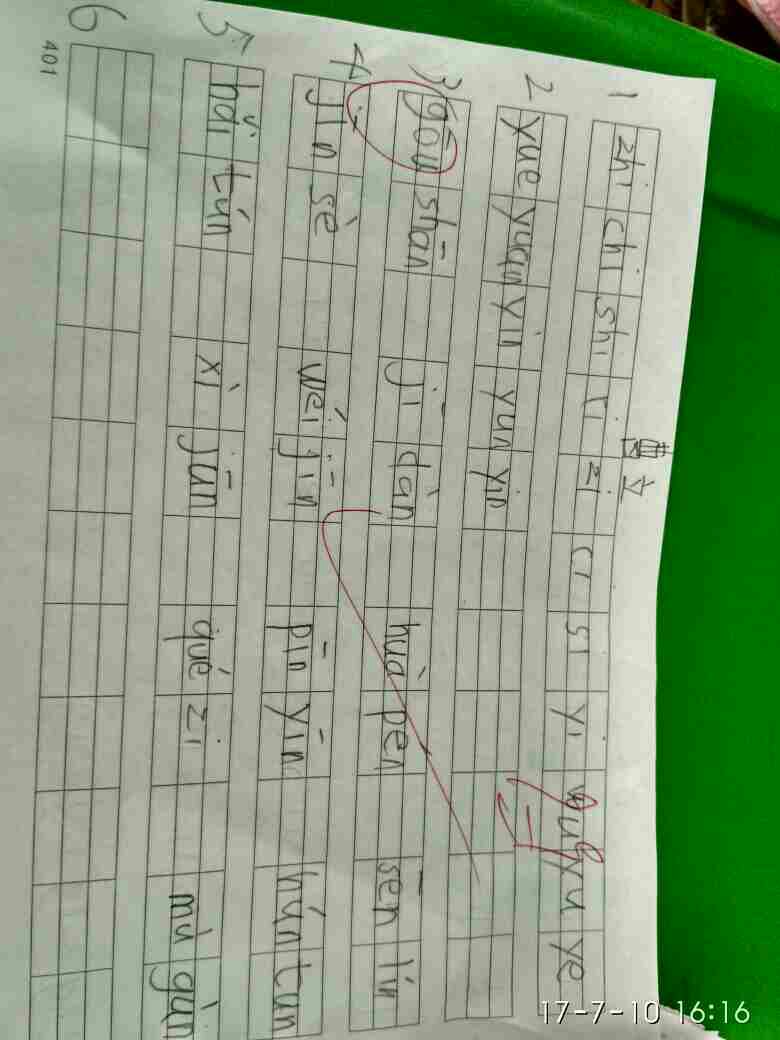 1 zhi chi shi ri zi ci si yi wu yu ye
2 yue yuan yin yun yin
3 gōu shān jī dàn huā pén sēn lín
4 jīn sè wéi jīn pīn yīn hún tun
5 hǎi tún xì jūn qué zi mù gùn
6
401
17-7-10 16:16